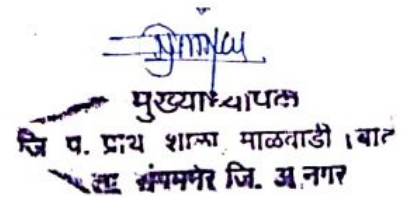 मुख्याध्यापक
जि प. प्राथ शाळा माळवाडी
ता संगमनेर जि. अ. नगर